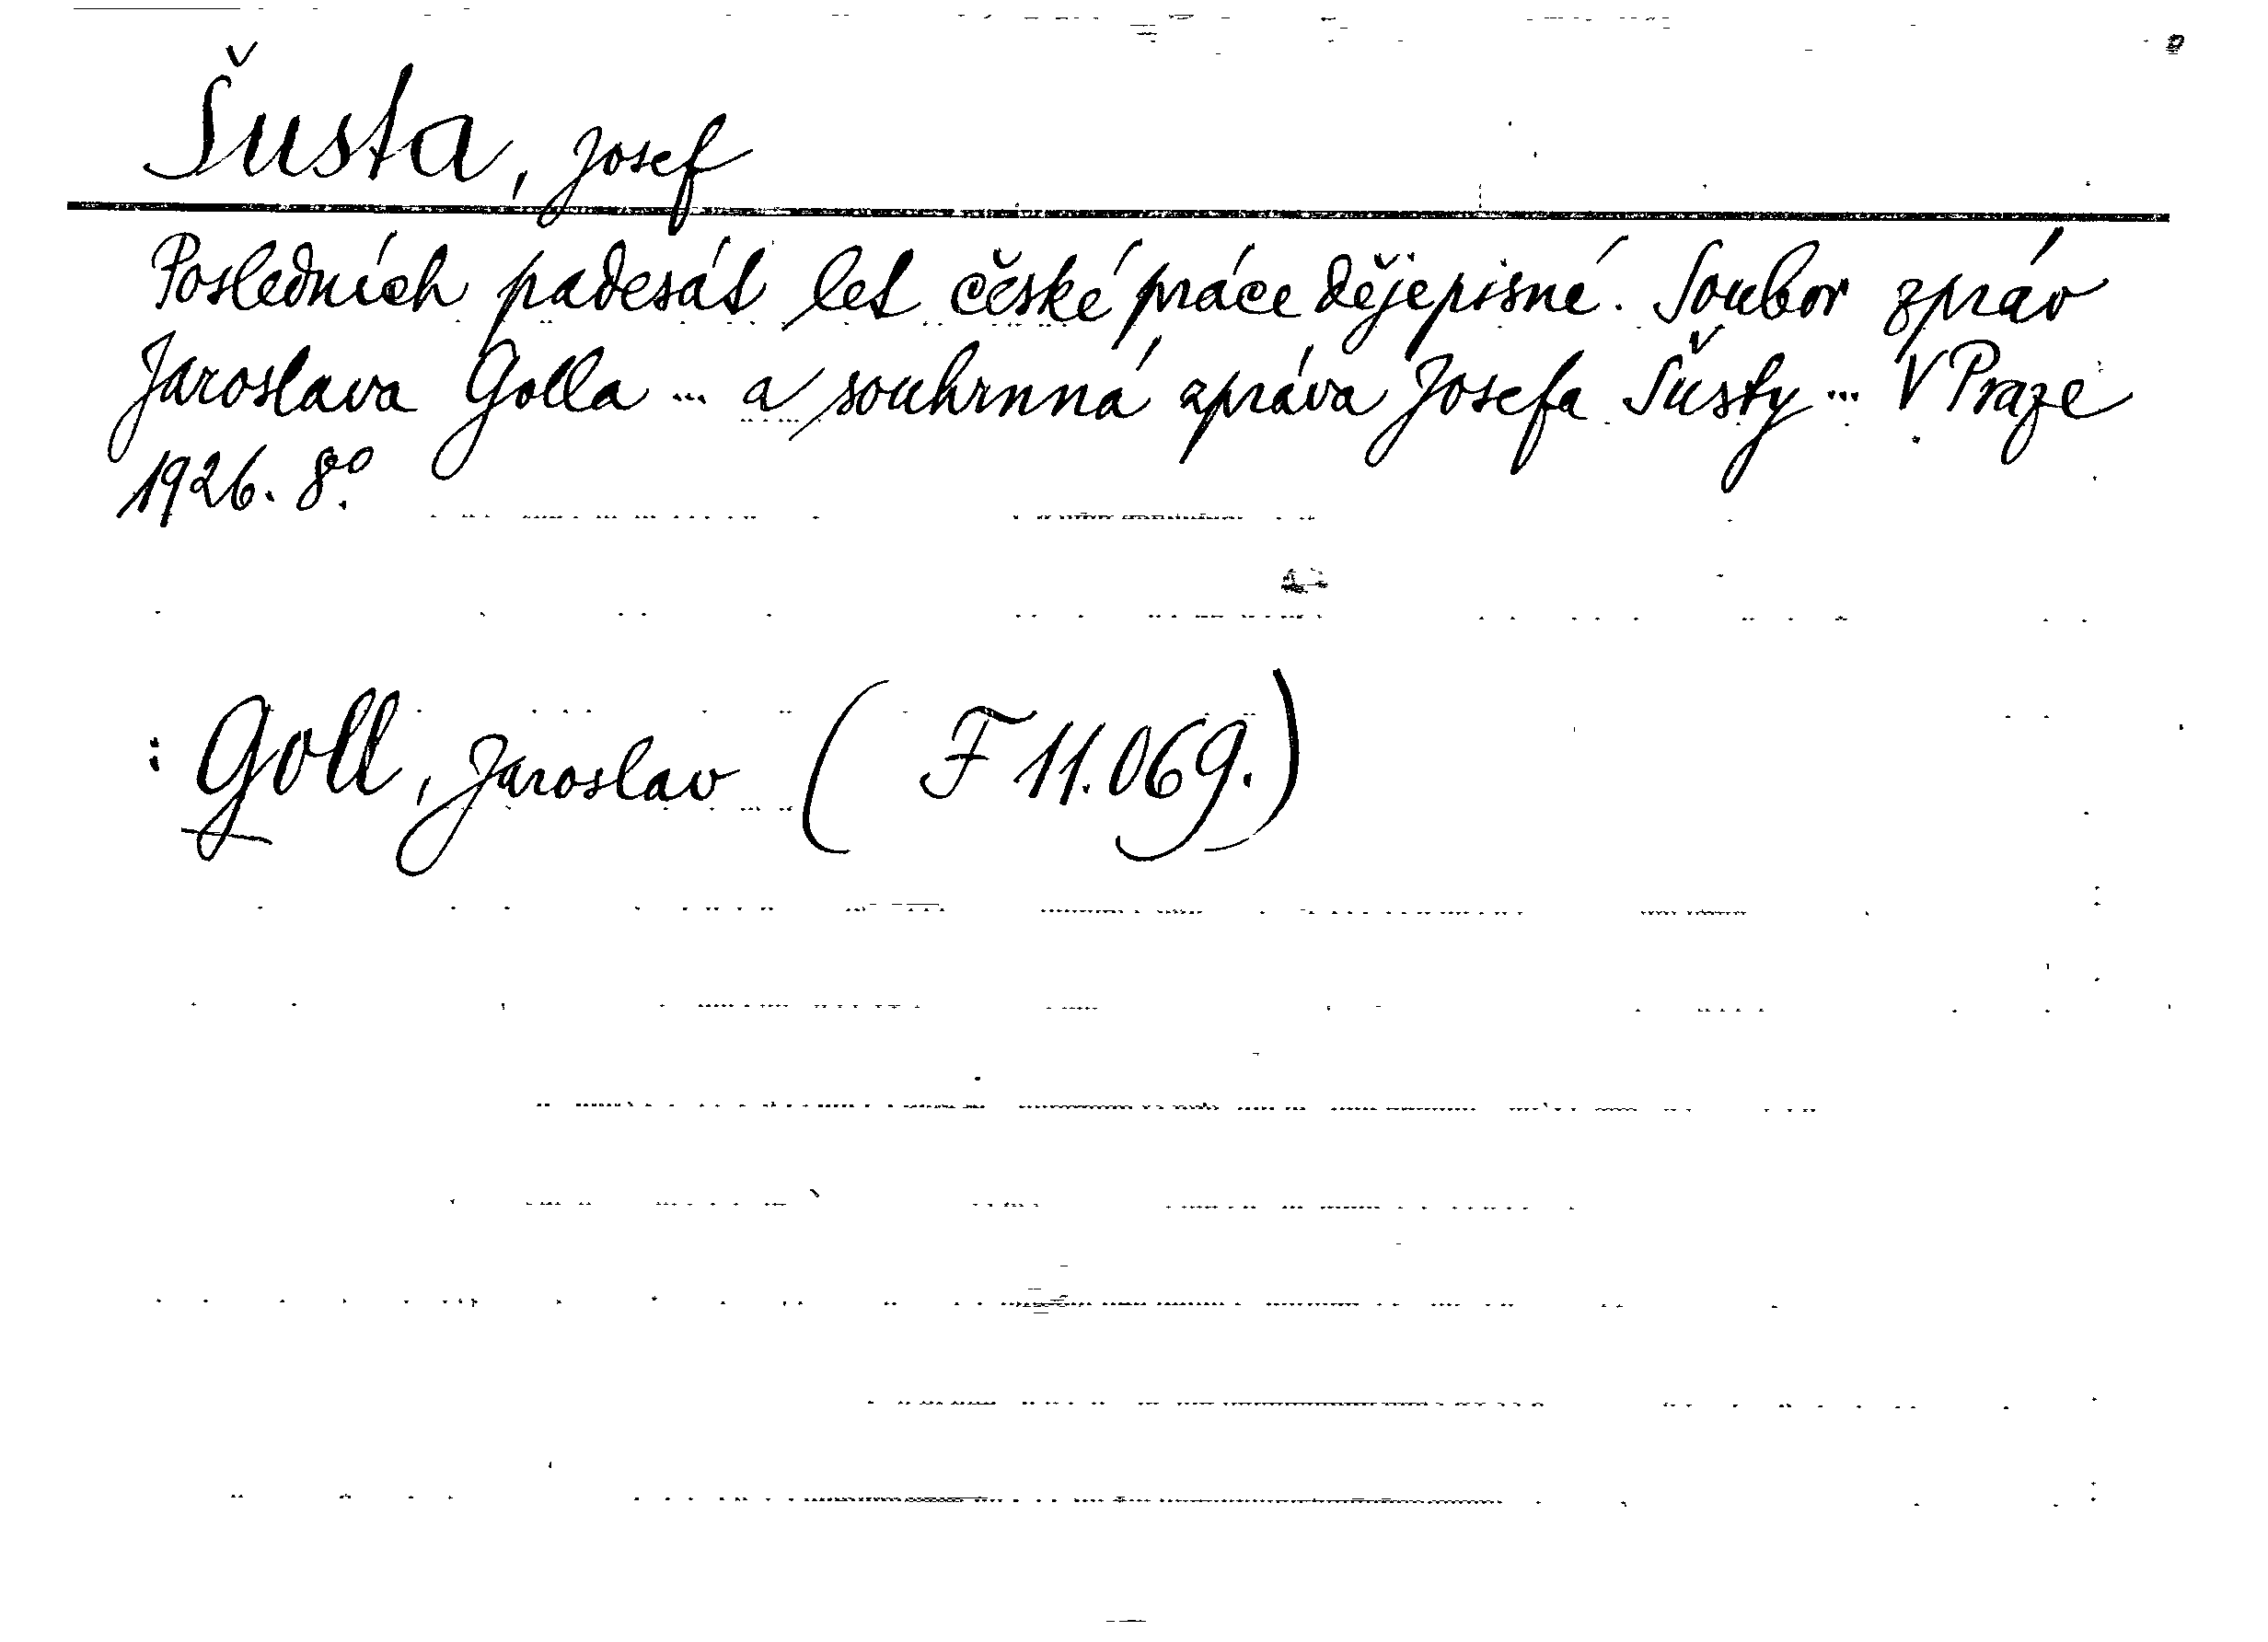 Šusta, Josef
Posledních padesát let české práce dějepisné. Soubor zpráv
Jaroslava Golla ... a souhrnná zpráva Josefa Šusty ... V Praze
1926. 8º.
: Goll, Jaroslav ( F 11.069.)